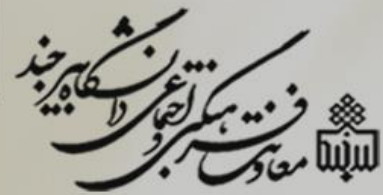 معاونت فرهنگی و اجتماعی دانشگاه بیرجند